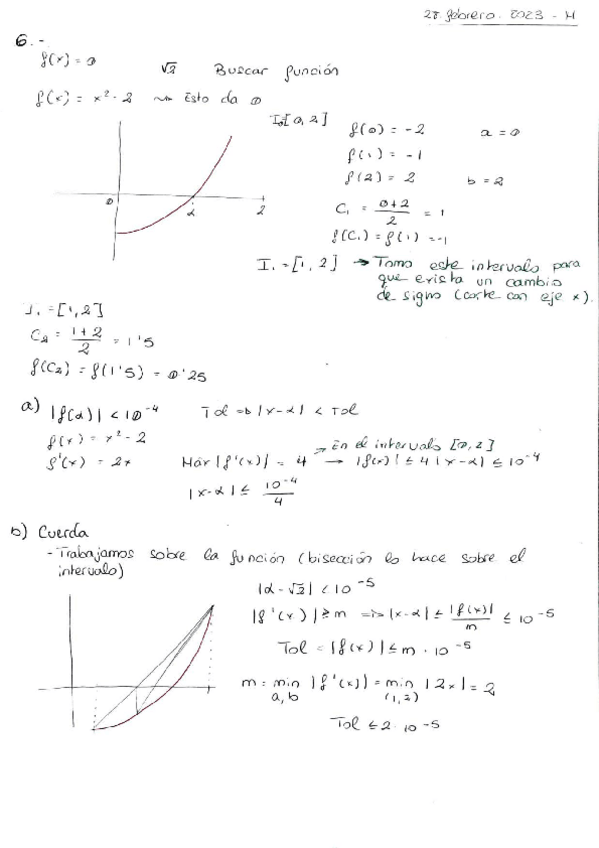 28. febrero. 2023 - M
6. -
f(x) = 0
√2 Buscar función
f(x) = x² - 2 ⇝ Esto da 0
I₀[0, 2]
f(0) = -2 a = 0
f(1) = -1
f(2) = 2 b = 2
C₁ = (0+2)/2 = 1
f(C₁) = f(1) = -1
0 α 2
I₁ = [1, 2] → Tomo este intervalo para
que exista un cambio
de signo (corte con eje x).
I₁ = [1, 2]
C₂ = (1+2)/2 = 1'5
f(C₂) = f(1'5) = 0'25
a) |f(α)| < 10⁻⁴ Tol ⇒ |x-α| < Tol
f(x) = x² - 2
→ En el intervalo [0, 2]
f'(x) = 2x Máx |f'(x)| = 4 → |f(x)| ≤ 4 |x-α| ≤ 10⁻⁴
|x-α| ≤ 10⁻⁴/4
b) Cuerda
- Trabajamos sobre la función (bisección lo hace sobre el
intervalo)
|α - √2| < 10⁻⁵
|f'(x)| ≥ m ⇒ |x-α| ≤ |f(x)|/m ≤ 10⁻⁵
Tol = |f(x)| ≤ m · 10⁻⁵
m = min a,b |f'(x)| = min (1,2) |2x| = 2
Tol ≤ 2 · 10⁻⁵